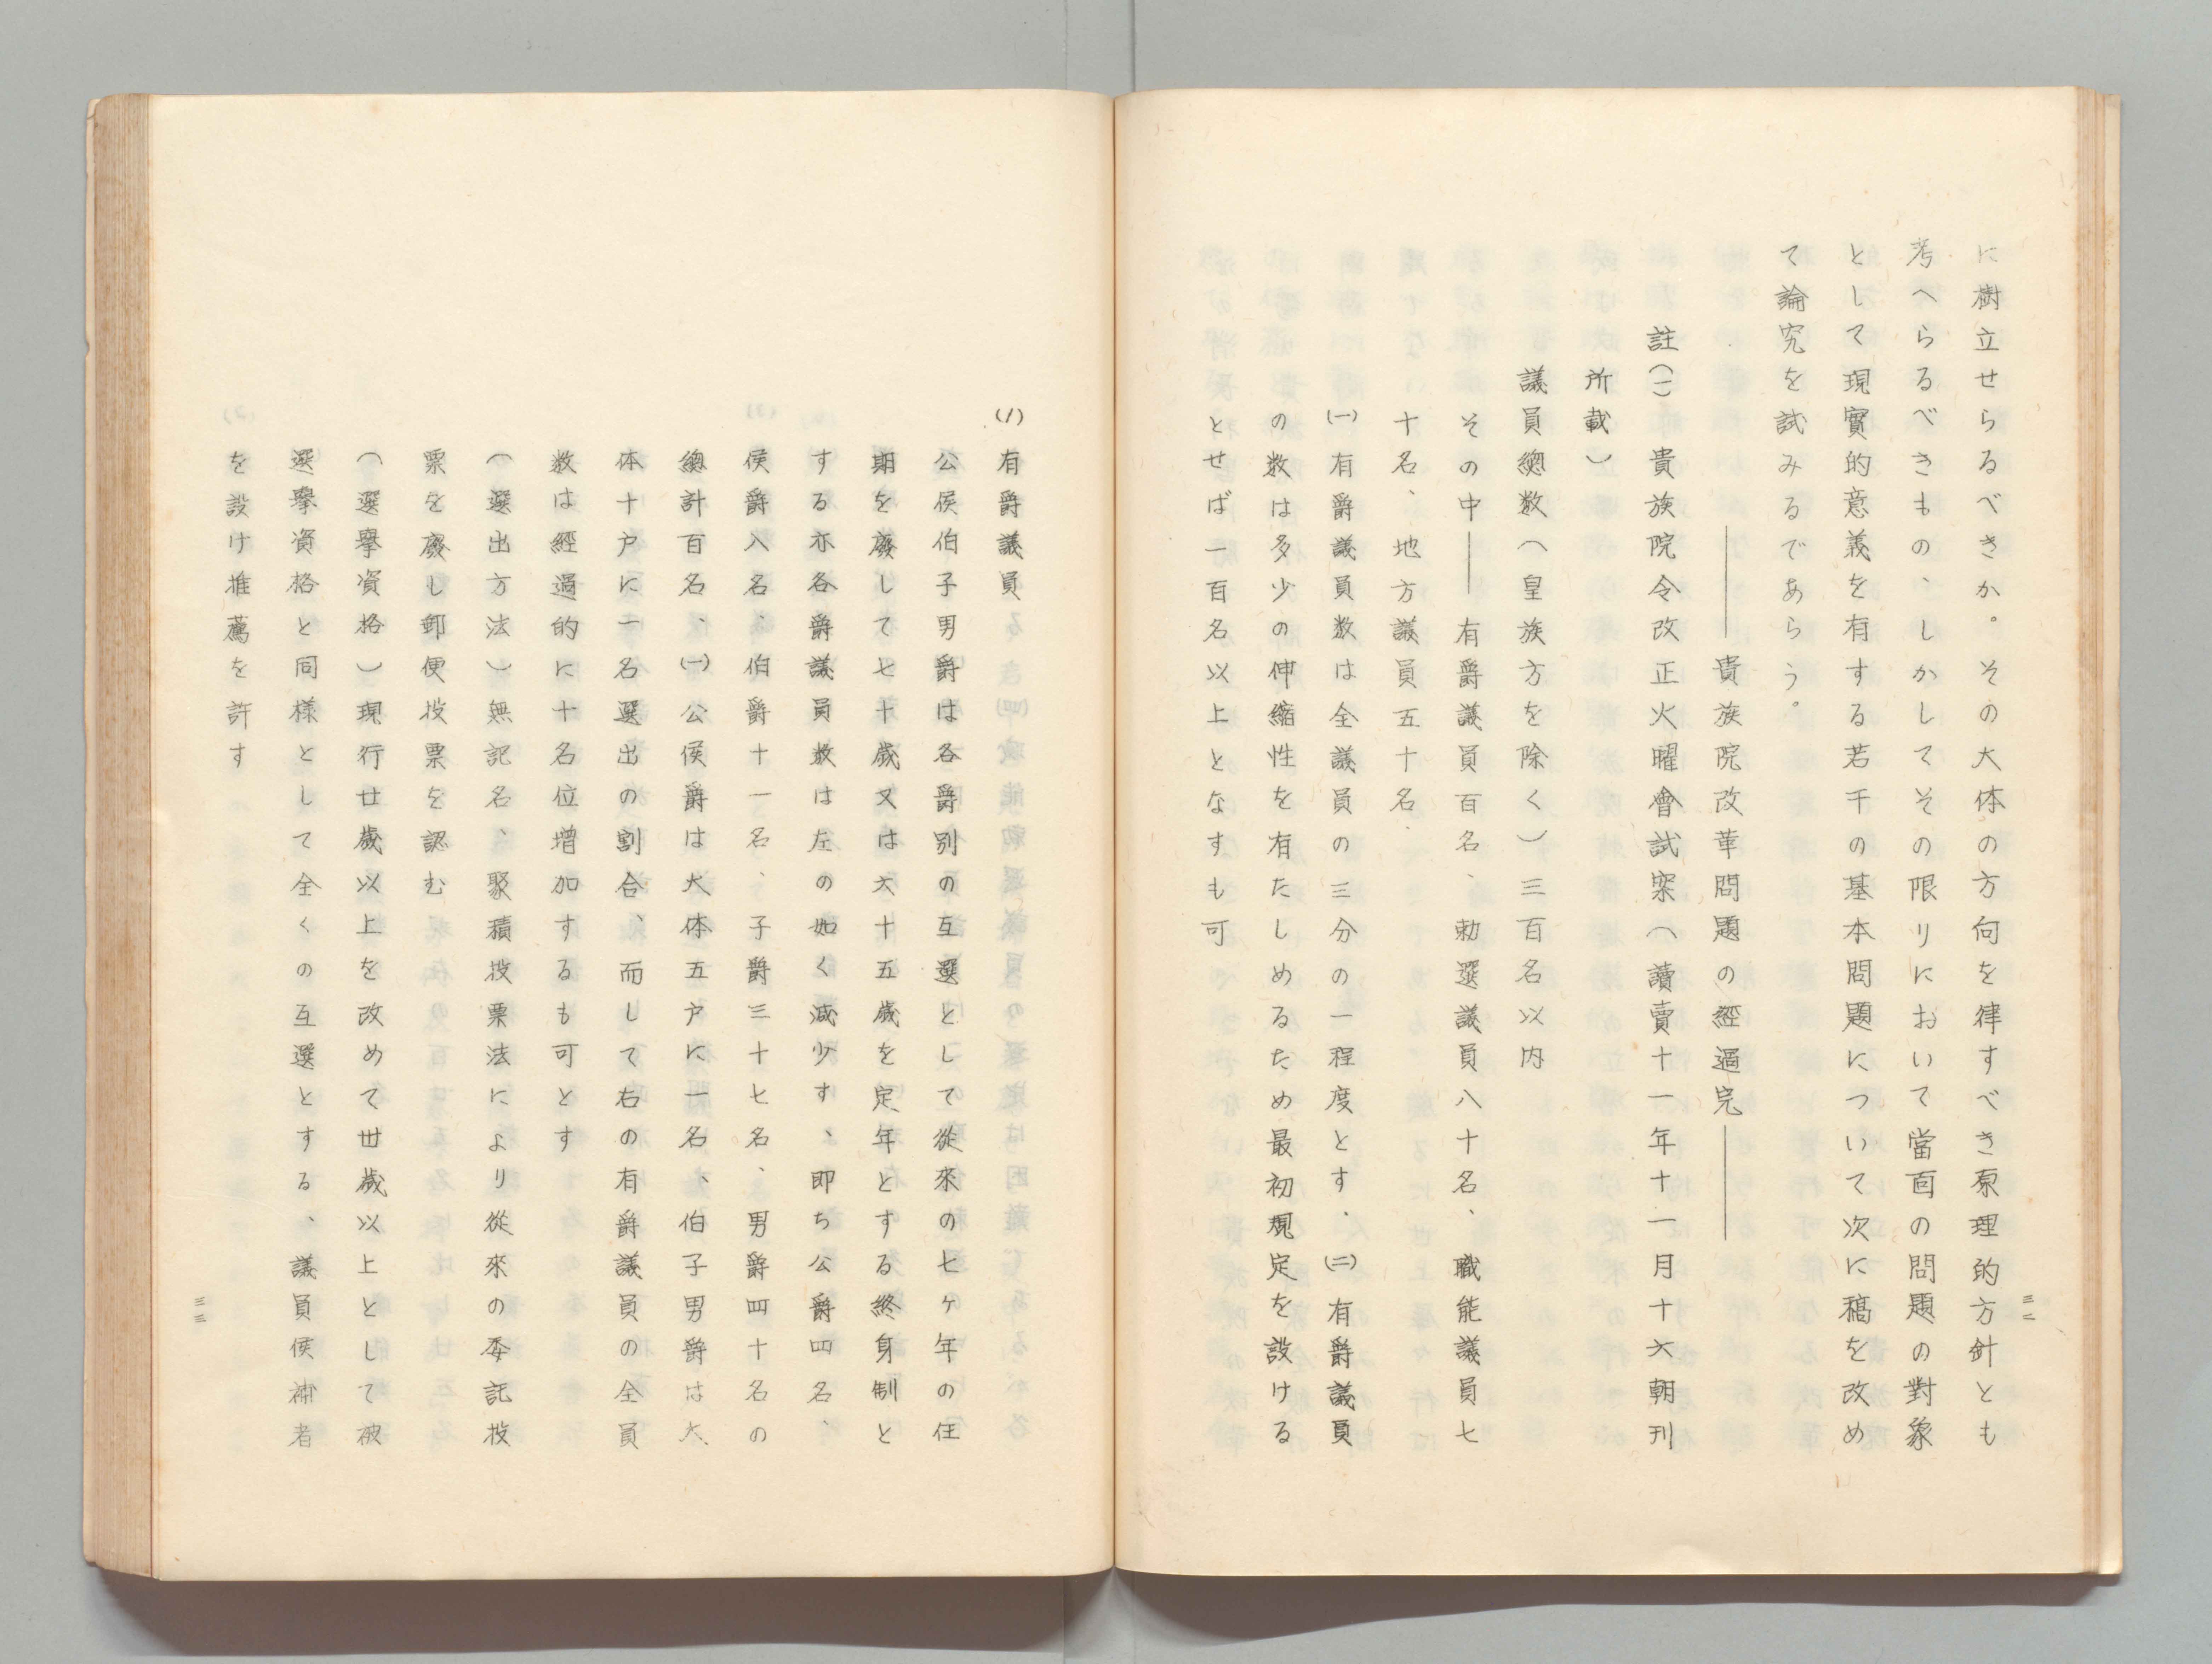 に樹立せらるべきか。その大体の方向を律すべき原理的方針とも
考へらるべきもの、しかしてその限りにおいて當面の問題の對象
として現實的意義を有する若干の基本問題について次に稿を改め
て論究を試みるであらう。
――貴族院改革問題の經過完――
註(一)　貴族院令改正火曜會試案(讀賣十一年十一月十六朝刊
所載)
議員總数(皇族方を除く)三百名以内
その中――有爵議員百名、勅選議員八十名、職能議員七
十名、地方議員五十名、
(一)有爵議員数は全議員の三分の一程度とす、(二)有爵議員
の数は多少の伸縮性を有たしめるため最初規定を設ける
とせば一百名以上となすも可
三二
(1)有爵議員
公侯伯子男爵は各爵別の互選として從來の七ヶ年の任
期を廢して七十歳又は六十五歳を定年とする終身制と
する亦各爵議員数は左の如く減少す、即ち公爵四名、
侯爵八名、伯爵十一名、子爵三十七名、男爵四十名の
總計百名、(一)公侯爵は大体五戸に一名、伯子男爵は大
体十戸に一名選出の割合、而して右の有爵議員の全員
数は經過的に十名位増加するも可とす
(選出方法)無記名、聚積投票法により從來の委託投
票を廢し郵便投票を認む
(選擧資格)現行廿歳以上を改めて丗歳以上として被
選擧資格と同様として全くの互選とする、議員侯補者
を設け推薦を許す
三三